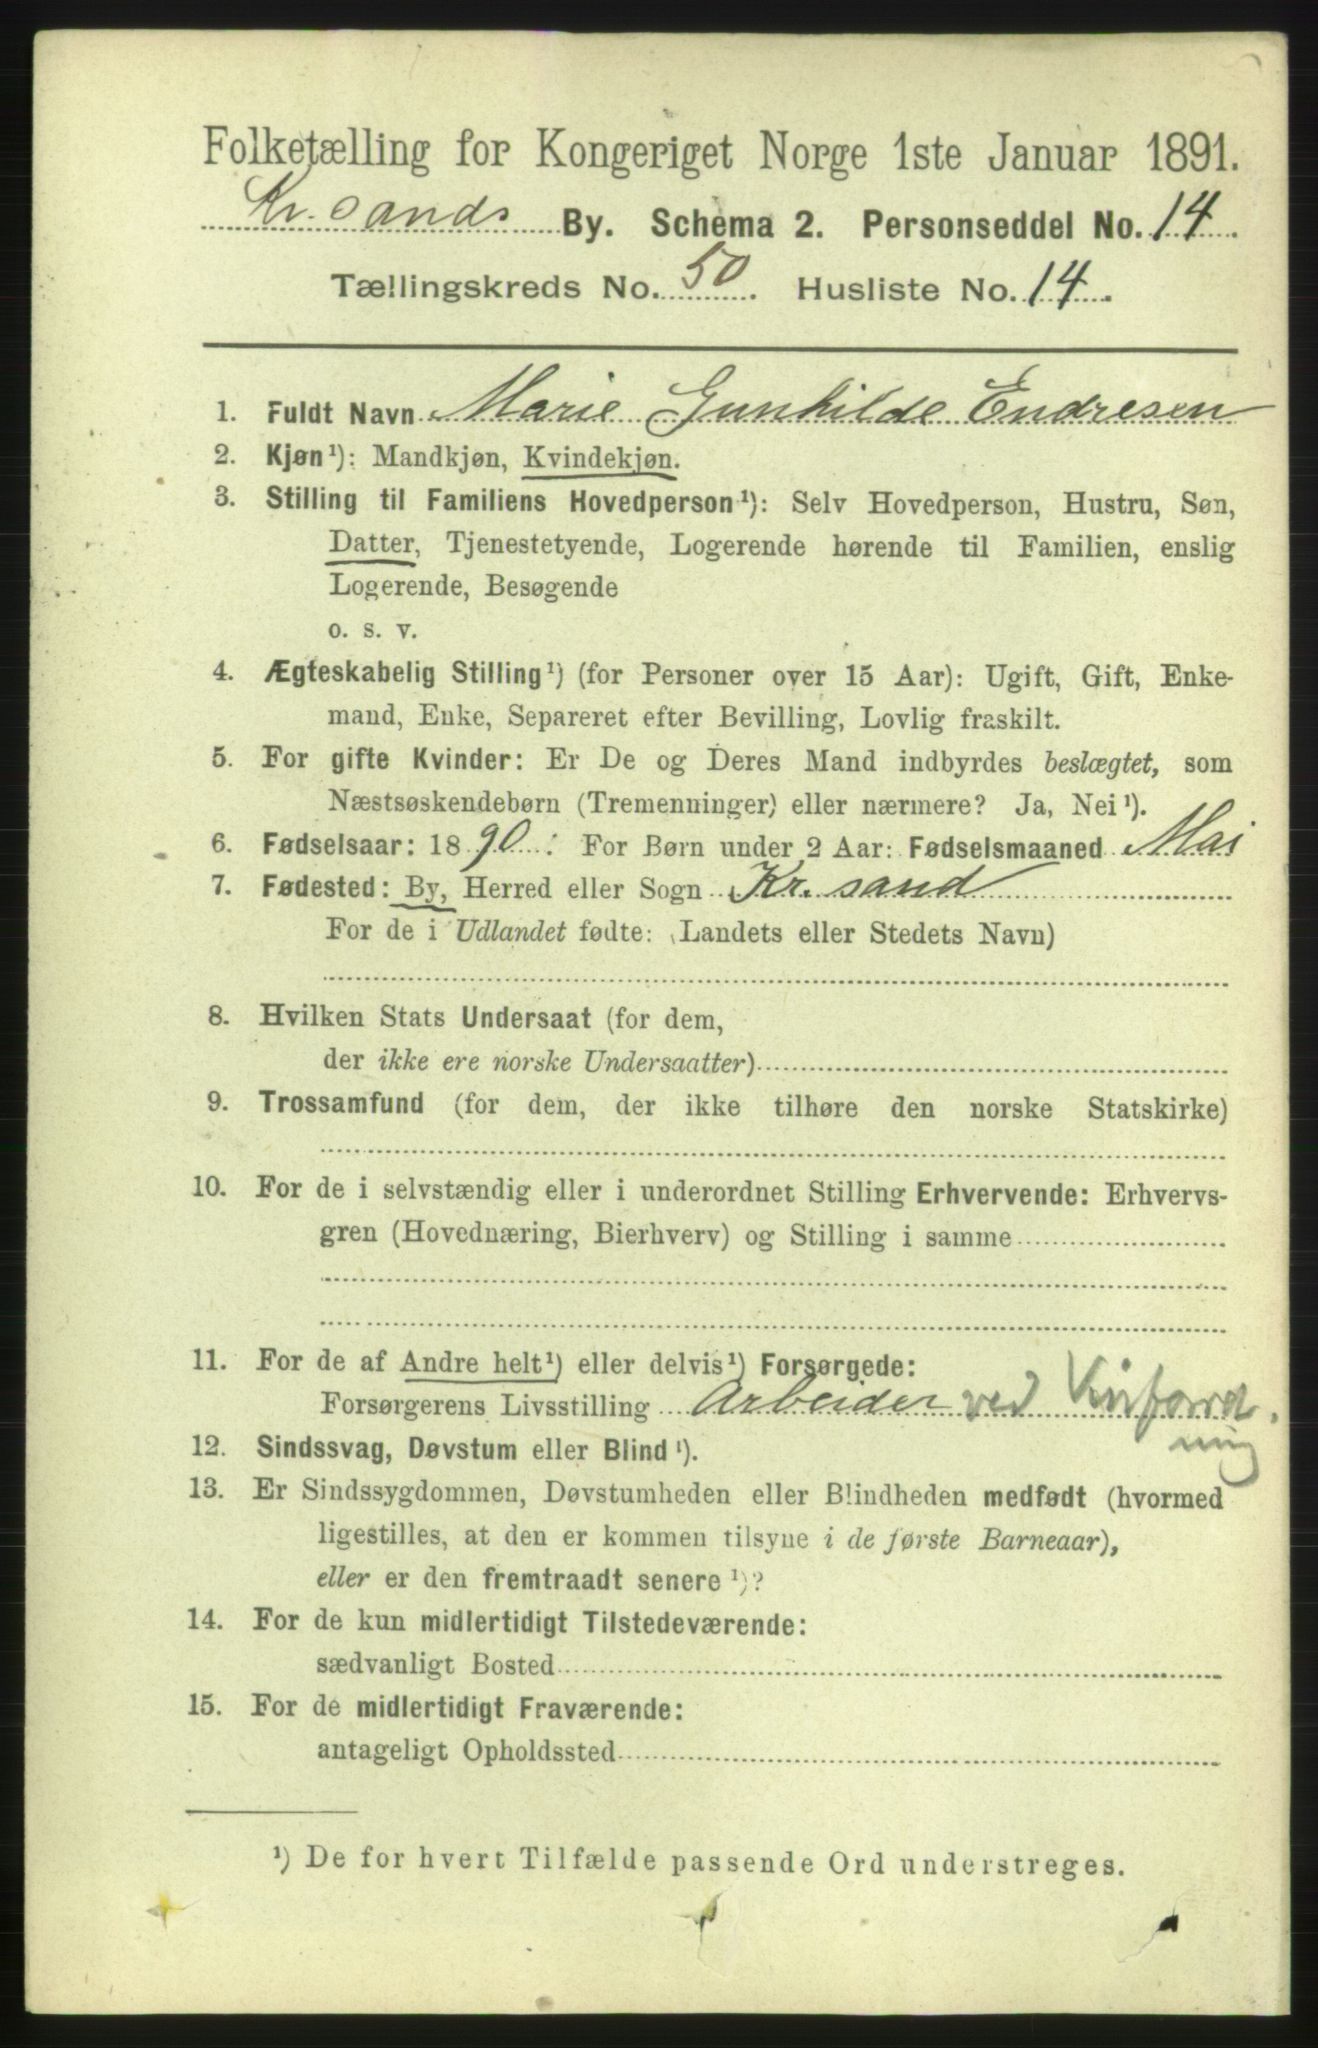 Folketælling for Kongeriget Norge 1ste Januar 1891.
Kr. sands By. Schema 2. Personseddel No. 14
Tællingskreds No. 50. Husliste No. 14.
1. Fuldt Navn Marie Gunhilde Endresen
2. Kjøn¹): Mandkjøn, Kvindekjøn.
3. Stilling til Familiens Hovedperson¹): Selv Hovedperson, Hustru, Søn,
Datter, Tjenestetyende, Logerende hørende til Familien, enslig
Logerende, Besøgende
o. s. v.
4. Ægteskabelig Stilling¹) (for Personer over 15 Aar): Ugift, Gift, Enke-
mand, Enke, Separeret efter Bevilling, Lovlig fraskilt.
5. For gifte Kvinder: Er De og Deres Mand indbyrdes beslægtet, som
Næstsøskendebørn (Tremenninger) eller nærmere? Ja, Nei¹).
6. Fødselsaar: 1890: For Børn under 2 Aar: Fødselsmaaned Mai
7. Fødested: By, Herred eller Sogn Kr. sand
For de i Udlandet fødte: (Landets eller Stedets Navn)
8. Hvilken Stats Undersaat (for dem,
der ikke ere norske Undersaatter)
9. Trossamfund (for dem, der ikke tilhøre den norske Statskirke)
10. For de i selvstændig eller i underordnet Stilling Erhvervende: Erhvervs-
gren (Hovednæring, Bierhverv) og Stilling i samme
11. For de af Andre helt¹) eller delvis¹) Forsørgede:
Forsørgerens Livsstilling Arbeider ved
12. Sindssvag, Døvstum eller Blind¹).
13. Er Sindssygdommen, Døvstumheden eller Blindheden medfødt (hvormed
ligestilles, at den er kommen tilsyne i de første Barneaar),
eller er den fremtraadt senere¹)?
14. For de kun midlertidigt Tilstedeværende:
sædvanligt Bosted
15. For de midlertidigt Fraværende:
antageligt Opholdssted
¹) De for hvert Tilfælde passende Ord understreges.